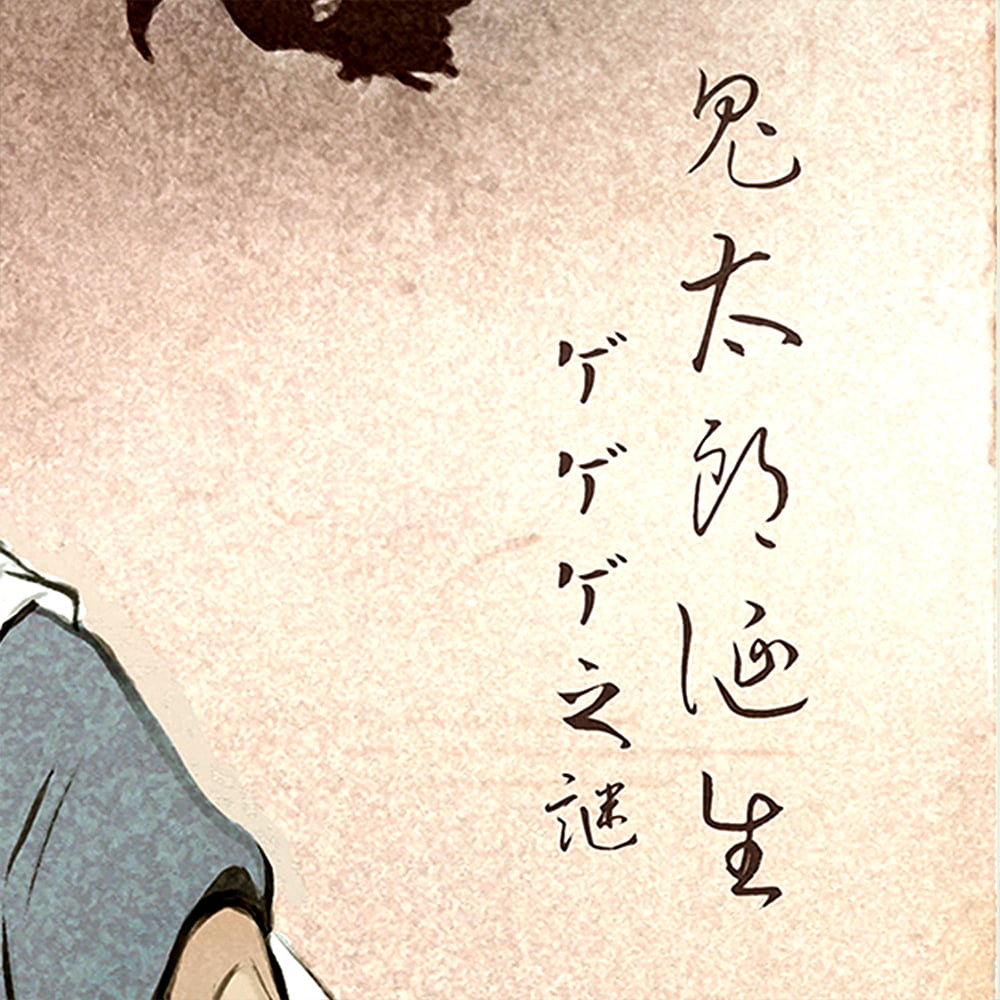 鬼太郎誕生
ゲゲゲ之謎